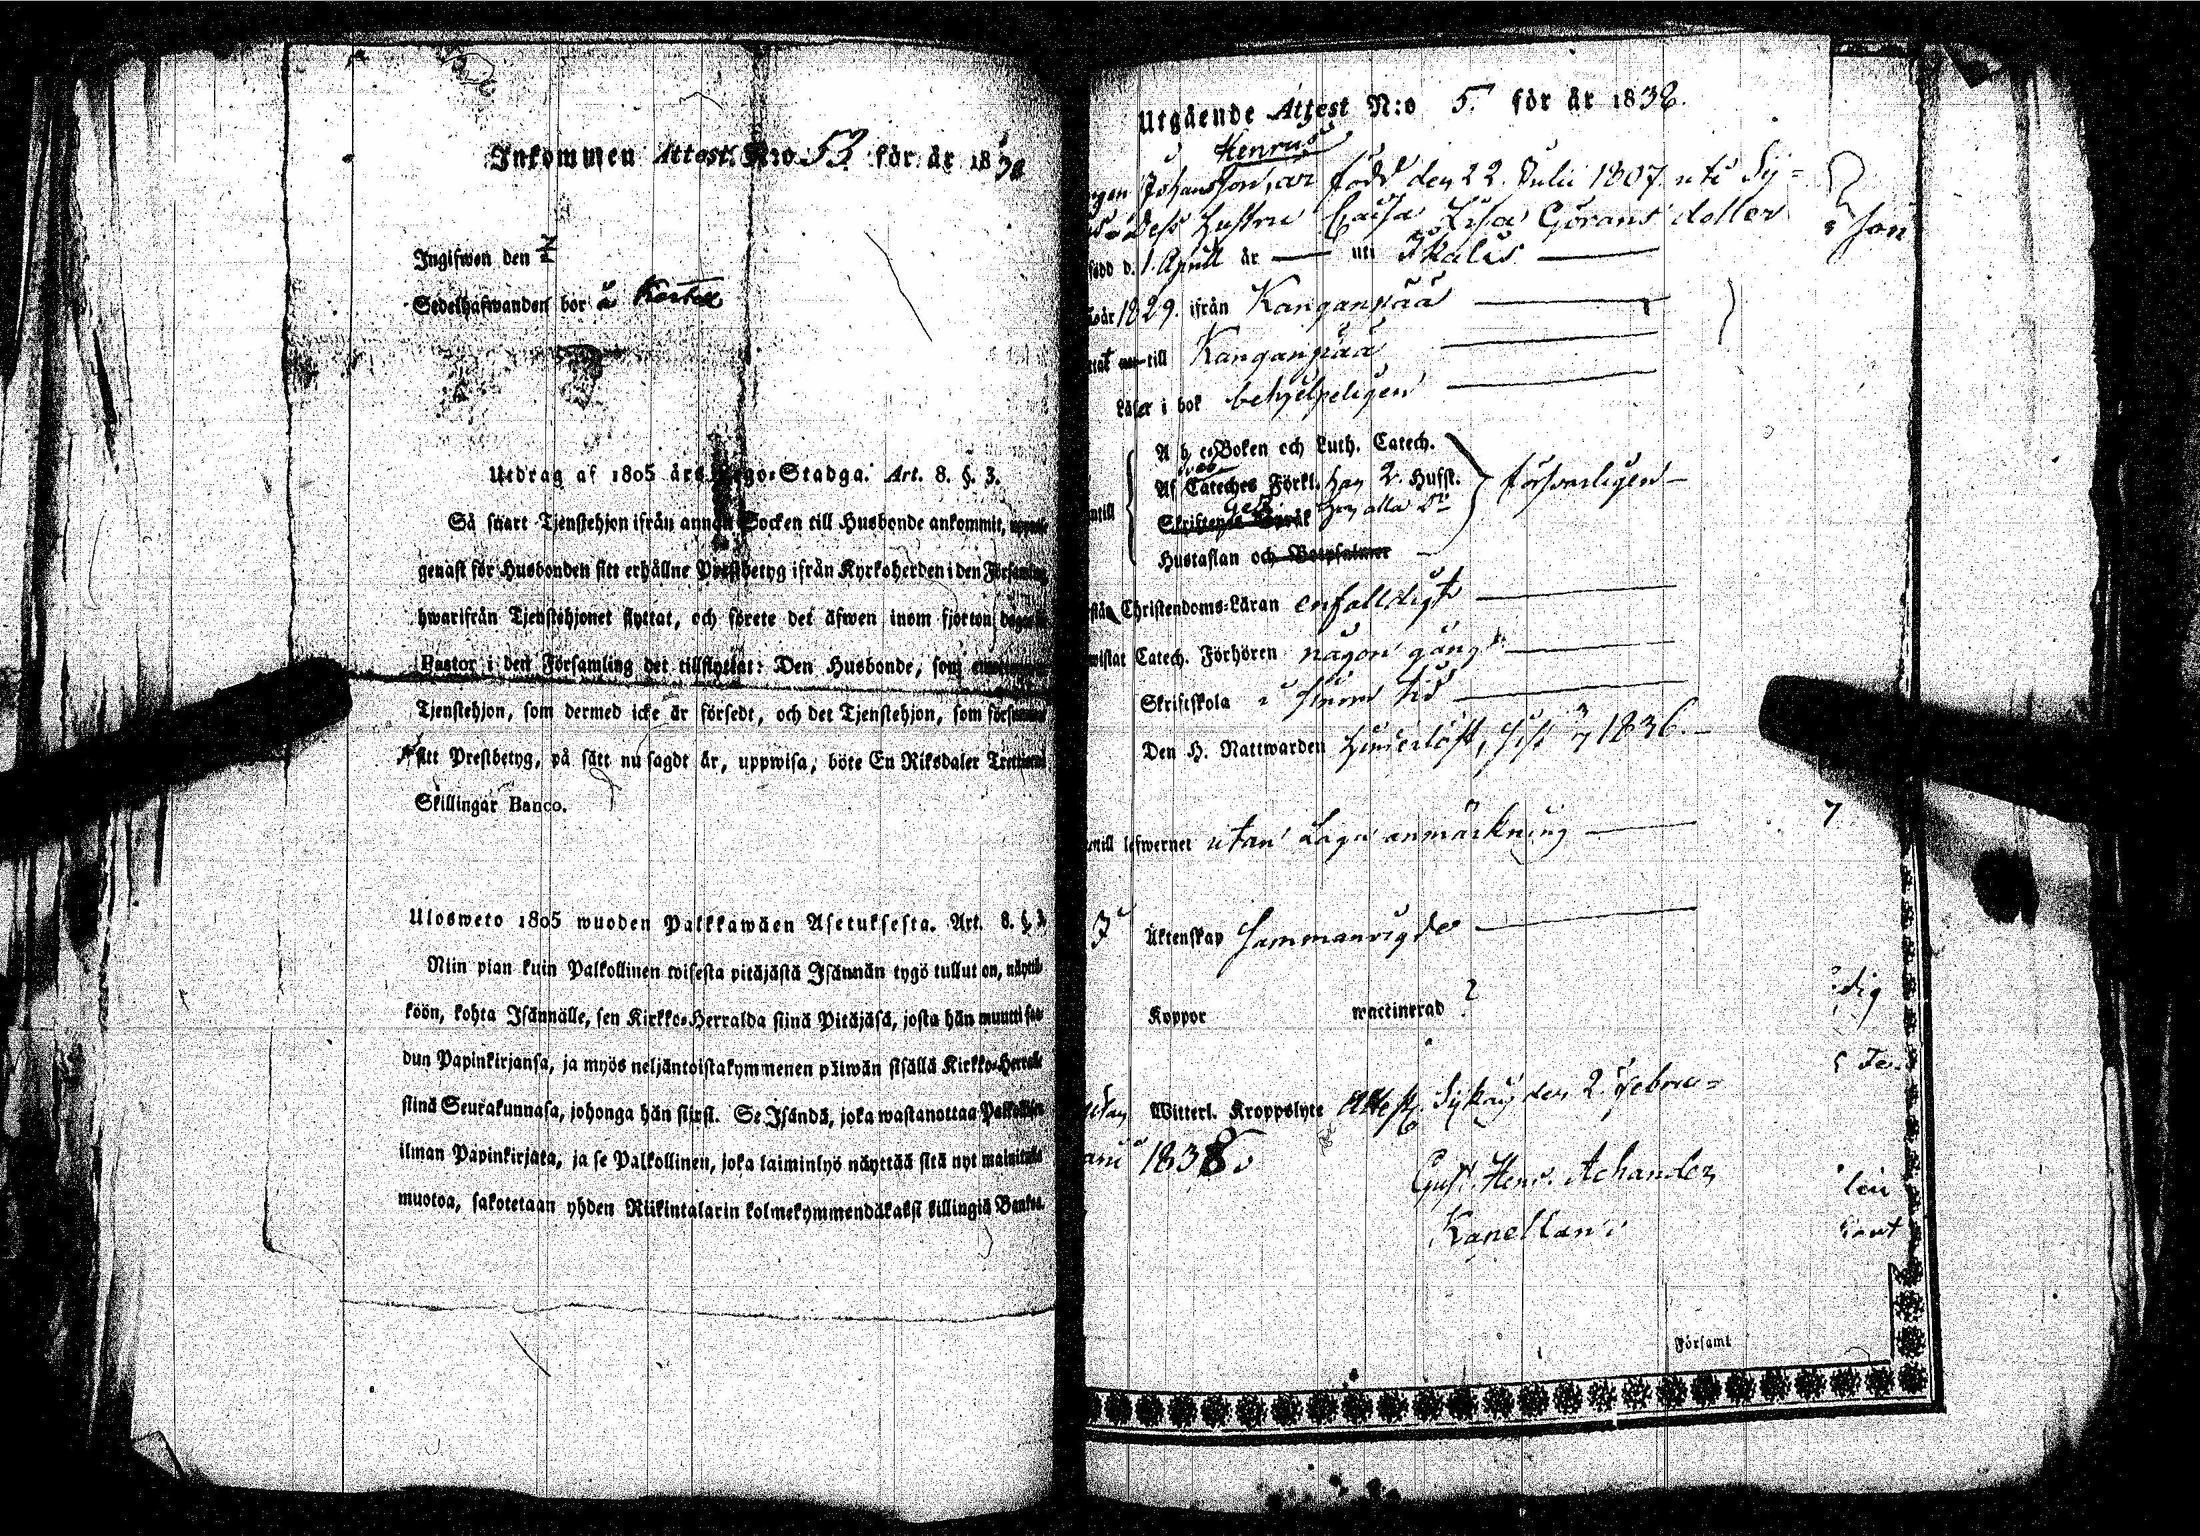 Inkommen Attest N:o 53 för år 18
Ingifwen den
Sedelhafwanden bor å
Utdrag af 1805 års Lego-Stadga. Art. 8. §. 3.
Så snart Tjenstehjon ifrån annan Socken till Husbonde ankommit,
genast för Husbonden sitt erhållne Prestbetyg ifrån Kyrkoherden i den Församling
hwarifrån Tjenstehjonet flyttat, och förete det äfwen inom fjorton
Pastor i den Församling det tillflyttat: Den Husbonde, som
Tjenstehjon, som dermed icke är försedt, och det Tjenstehjon, som
att Prestbetyg, på sätt nu sagdt är, uppwisa, böte En Riksdaler
Skillingar Banco.
Ulosweto 1805 wuoden Palkkawäen Asetuksesta. Art. 8. §. 3
Niin pian kuin Palkollinen toisesta pitäjästä Isännän tygö tullut on, näyttä-
köön, kohta Isännälle, sen Kirkko-Herralda siinä Pitäjäsä, josta hän muutti
dun Papinkirjansa, ja myös neljäntoistakymmenen päiwän sisällä Kirkko-Herralle
siinä Seurakunnasa, johonga hän siirsi. Se Isändä, joka wastanottaa Palkollisen
ilman Papinkirjata, ja se Palkollinen, joka laiminlyö näyttää sitä nyt mainitulla
muotoa, sakotetaan yhden Riikintalarin kolmekymmendäkaksi killingiä Bankoa.
Utgående Attest N:o 5. för år 1838.
Henrus
Johansson, är född den 22. Julii 1807 uti Sy-
Dess Hustru Caisa Lisa Göransdotter
född d. 1. April år — uti
år 1829. ifrån Kanganpää
till Kanganpää
Läser i bok behjelpeligen
A b c Boken och Luth. Catech.
Af Cateches Förkl. 2. Hufst.
försvarligen
alla
Hustaflan och Botpsalmer
Christendoms-Läran enfalldigt
wistat Catech. Förhören någon gång
Skriftskola i sinom tid
Den H. Nattwarden 1836.
till lefwernet utan Laga anmärkning
Äktenskap Sammanvigde
Koppor waccinerad ?
utan Witterl. Kroppslyte Attest. den 2. Febru-
arii 1838
Gust. Henr. Achander
Kapellan
dig
Församl